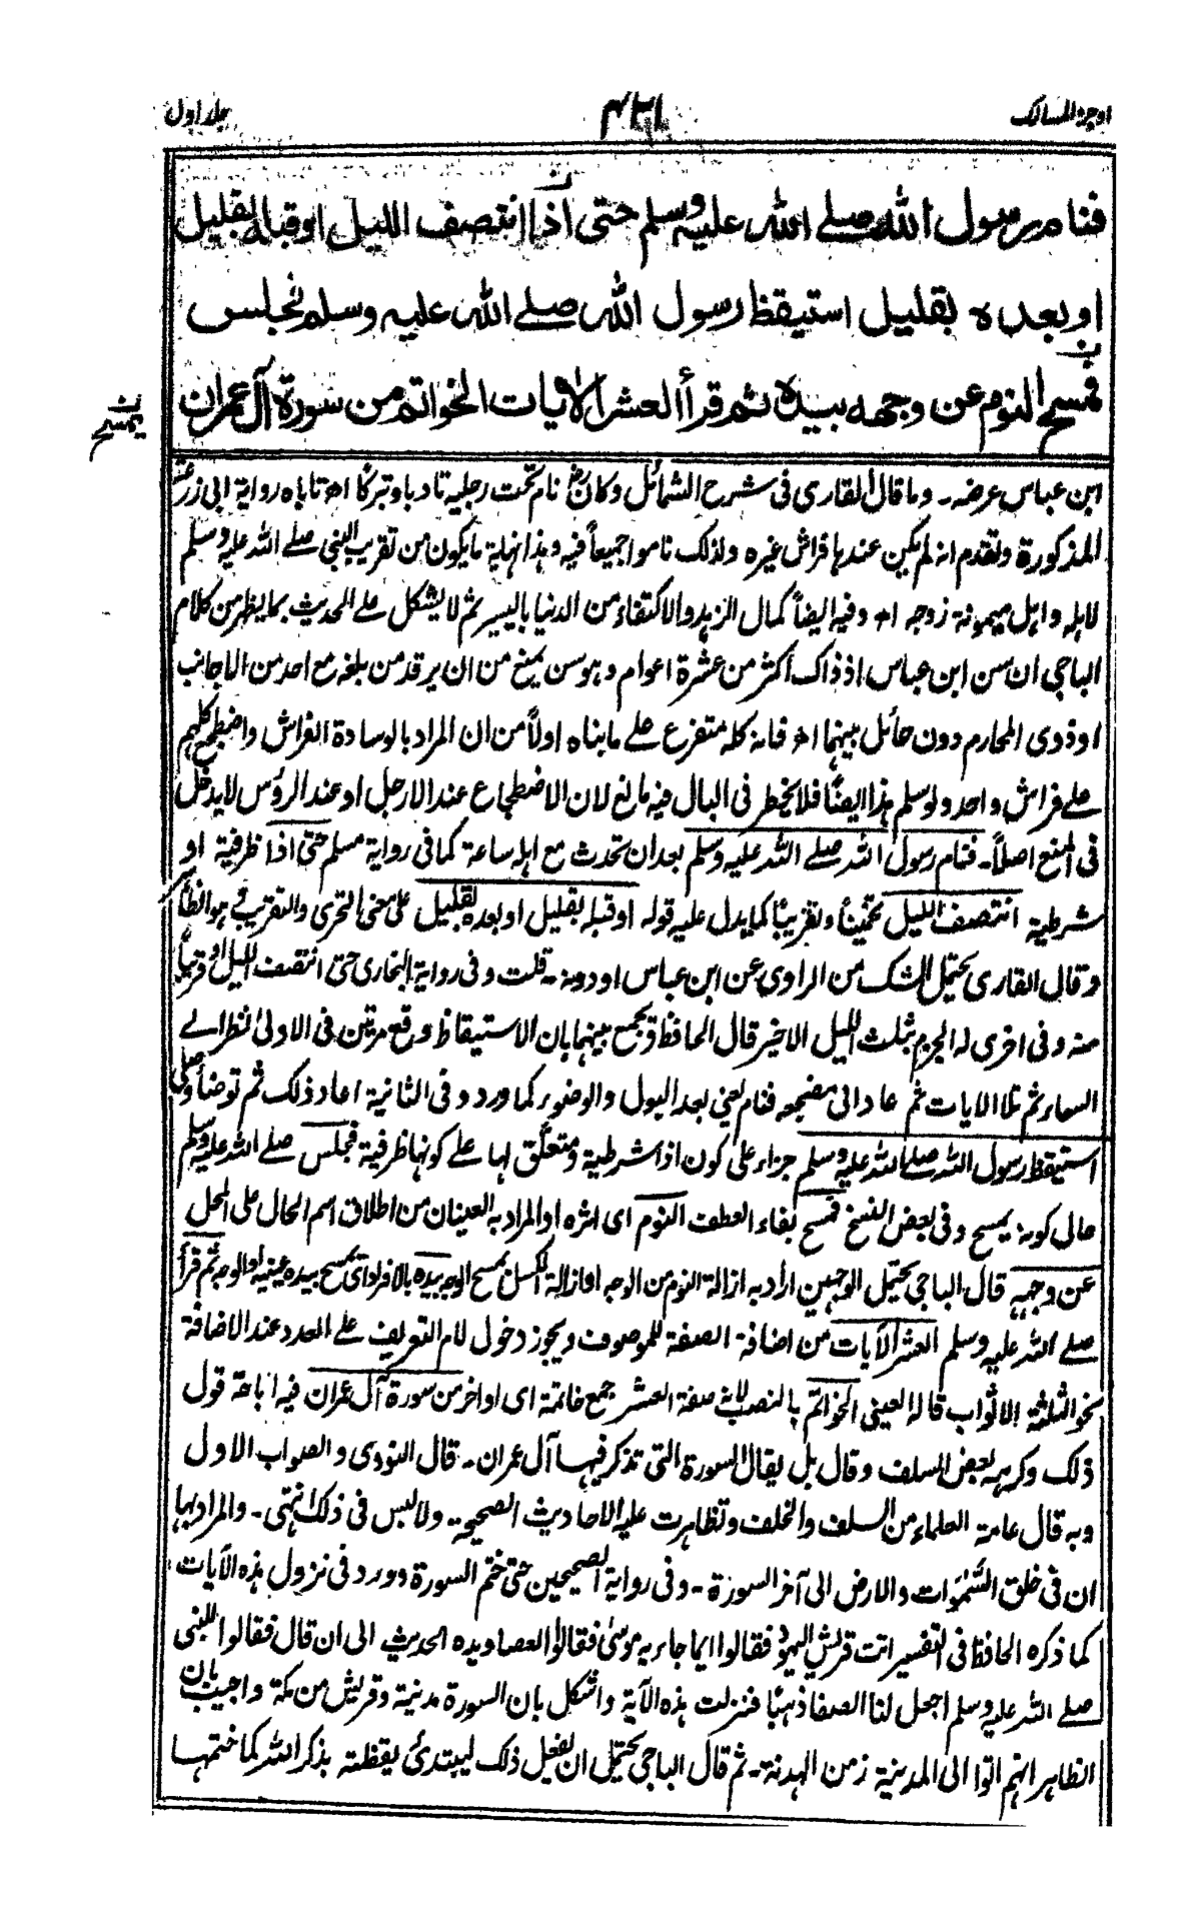 اوجز المسالك
۴۲۱
جلد اول
فنام رسول الله صلے الله عليه وسلم حتى اذا انتصف الليل او قبله بقليل
ن
او بعده بقليل استيقظ رسول الله صلے الله عليه وسلم فجلس
ن
فمسح النوم عن وجهه بيده ثم قرأ العشر الايات الخواتم من سورة آل عمران
ن
يمسح
ابن عباس عرضه۔ وما قال القارى فى شرح الشمائل وكان رض نام تحت رجليه تادبا وتبركا اھ تاباه رواية ابى زرعة
المذكورة وتقدم انه لم يكن عندها فراش غيره ولذلك ناموا جميعاً فيه وهذا نهاية ما يكون من تقريب النبى صلے الله عليه وسلم
لاهله واهل ميمونة زوجه اھ وفيه ايضاً كمال الزهد والاكتفاء من الدنيا باليسير ثم لا يشكل علے الحديث بما يظهر من كلام
الباجى ان سن ابن عباس اذ ذاك اكثر من عشرة اعوام وهو سن يمنع من ان يرقد من بلغه مع احد من الاجانب
او ذوى المحارم دون حائل بينهما اھ فانه كله متفرع علے ما بناه اولاً من ان المراد بالوسادة الفراش واضطجع كلهم
علے فراش واحد ولو سلم هذا ايضًا فلا يخطر فى البال فيه مانع لان الاضطجاع عند الارجل او عند الرؤس لا يدخل
فى المنع اصلاً۔ فنام رسول الله صلے الله عليه وسلم بعد ان تحدث مع اهله ساعة كما فى رواية مسلم حتى اذا ظرفية او
شرطية انتصف الليل تخمينًا وتقريبًا كما يدل عليه قوله او قبله بقليل او بعده بقليل على معنى التحرى والتقريب وهو الظاهر
وقال القارى يحتمل الشك من الراوى عن ابن عباس او دونه۔ قلت وفى رواية البخارى حتى انتصف الليل او قريبًا
منه وفى اخرى له الجزم بثلث الليل الاخير قال الحافظ ويجمع بينهما بان الاستيقاظ وقع مرتين فى الاولى نظر الے
السماء ثم تلا الايات ثم عاد الى مضجعه فنام يعنى بعد البول والوضوء كما ورد وفى الثانية اعاد ذلك ثم توضأ وصلى
استيقظ رسول الله صلے الله عليه وسلم جزاء على كون اذا شرطية ومتعلق لها علے كونها ظرفية فجلس صلے الله عليه وسلم
حال كونه يمسح وفى بعض النسخ فمسح بفاء العطف النوم اى اثره او المراد به العينان من اطلاق اسم الحال على المحل
عن وجهه قال الباجى يحتمل الوجهين اراد به ازالة النوم من الوجه او ازالة الكسل بمسح الوجه بيده بالافراد اى يمسح بيده عينيه او الوجه ثم قرأ
صلے الله عليه وسلم العشر الآيات من اضافة الصفة للموصوف ويجوز دخول لام التعريف علے العدد عند الاضافة
نحو الثلثة الاثواب قاله العينى الخواتم بالنصب لانه صفة العشر جمع خاتمة اى اواخر من سورة آل عمران فيه اباحة قول
ذلك وكرهه بعض السلف وقال بل يقال السورة التى تذكر فيها آل عمران۔ قال النووى والصواب الاول
وبه قال عامة العلماء من السلف والخلف وتظاهرت عليه الاحاديث الصحيحة۔ ولا لبس فى ذلك انتهى۔ والمراد بها
ان فى خلق السّمٰوات والارض الى آخر السورة۔ وفى رواية الصحيحين حتى ختم السورة وورد فى نزول هذه الآيات
كما ذكره الحافظ فى التفسير اتت قريش اليهود فقالوا ايما جاء به موسىٰ فقالوا العصا ويده الحديث الى ان قال فقالوا للنبى
صلے الله عليه وسلم اجعل لنا الصفا ذهبًا فنزلت هذه الآية واشكل بان السورة مدنية وقريش من مكة واجيب بان
الظاهر انهم اتوا الى المدينة زمن الهدنة۔ ثم قال الباجى يحتمل ان يفعل ذلك ليبتدئ يقظته بذكر الله كما ختمها